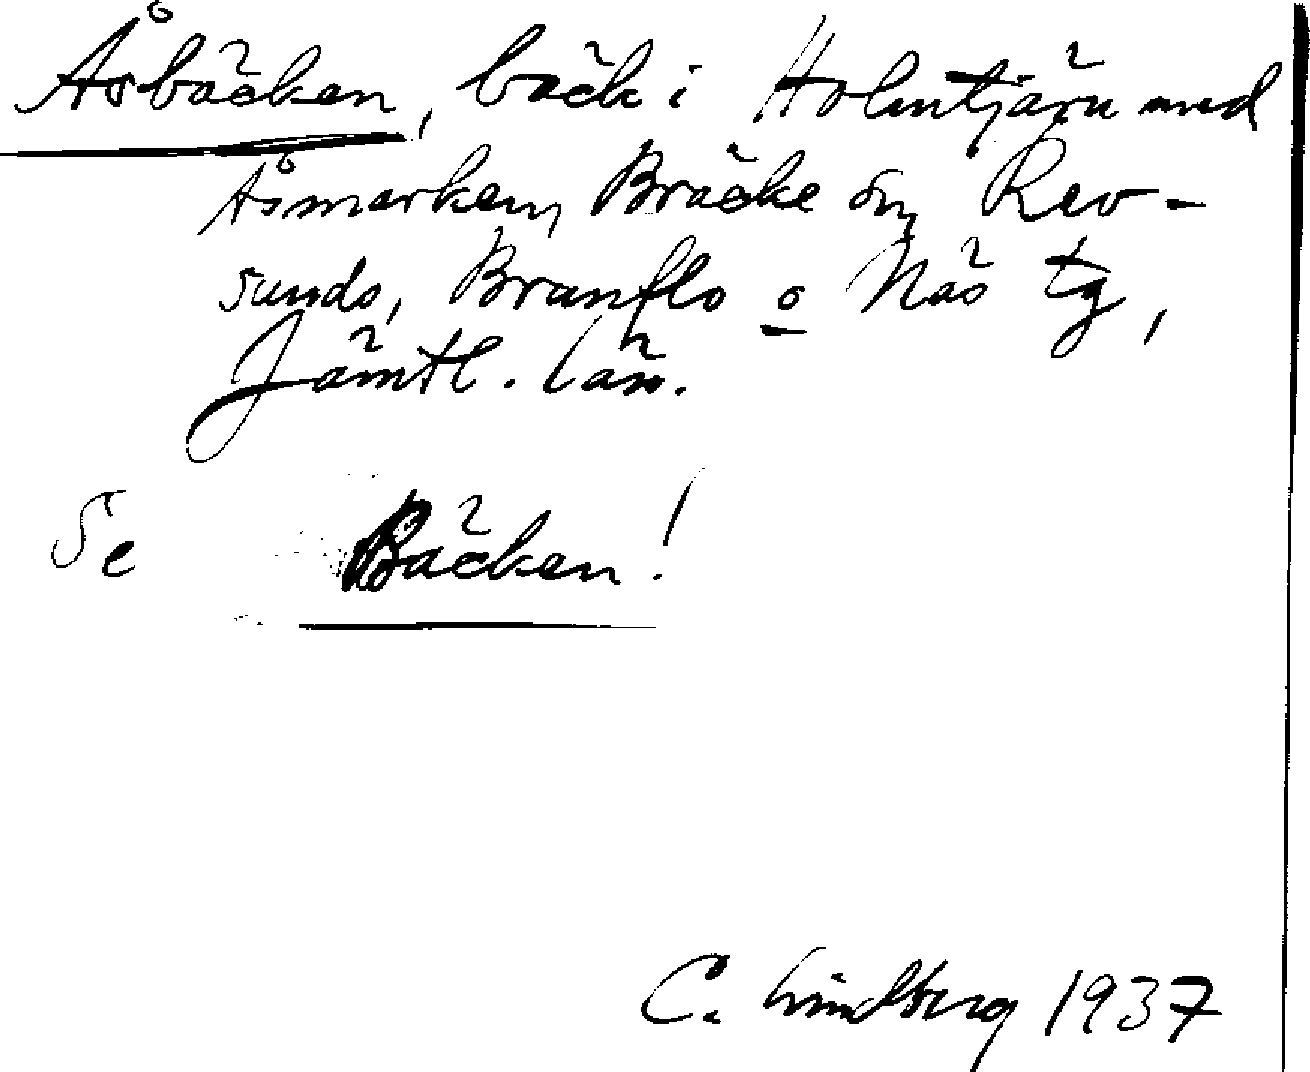 Åsbäcken, bäck i Holmtjärn med
Åsmarken, Bräcke sn, Rev-
sunds, Brunflo o Näs tg,
Jämtl. län.
Se Bäcken!
C. Lindberg 1937